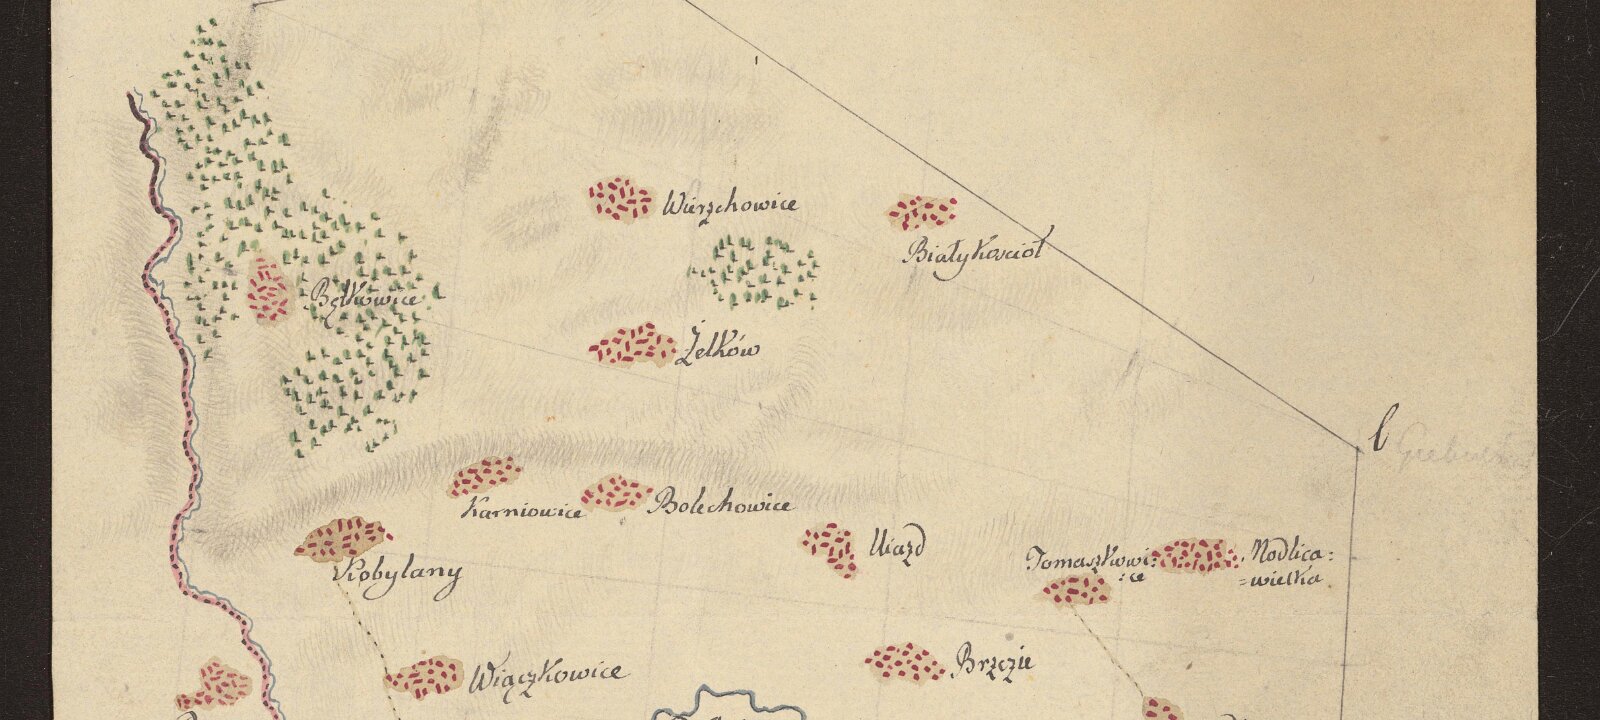 Wierzchowice
Białykościoł
Bętkowice
Żelków
l
Karniowice
Bolechowice
Uiazd
Kobylany
Tomaszkowi:
:ce
Modlica:
=wielka
Wiączkowice
Brzezie